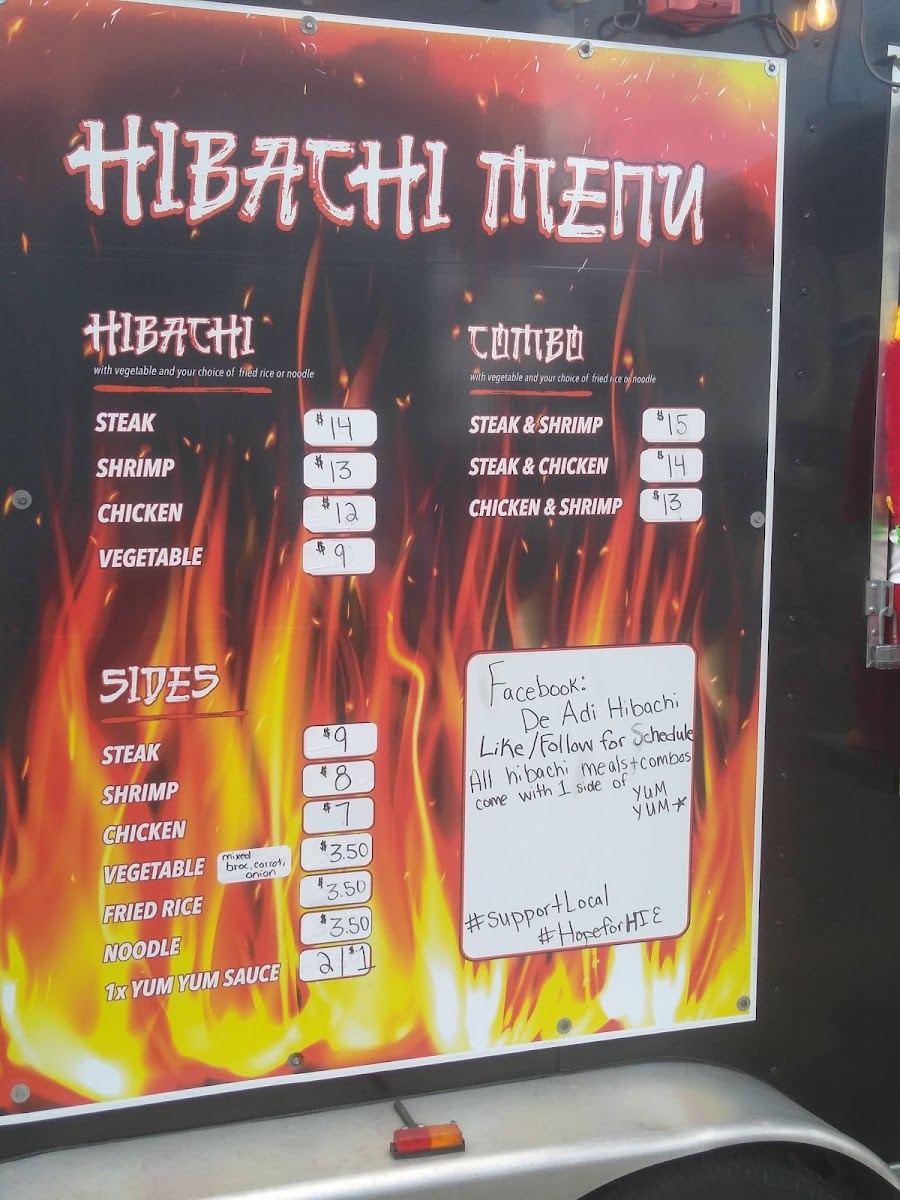 HIBACHI MENU
HIBACHI
with vegetable and your choice of fried rice or noodle
STEAK $14
SHRIMP $13
CHICKEN $12
VEGETABLE $9
COMBO
with vegetable and your choice of fried rice or noodle
STEAK & SHRIMP $15
STEAK & CHICKEN $14
CHICKEN & SHRIMP $13
SIDES
STEAK $9
SHRIMP $8
CHICKEN $7
VEGETABLE mixed broc, carrot, onion $3.50
FRIED RICE $3.50
NOODLE $3.50
1x YUM YUM SAUCE 2/$1
Facebook:
De Adi Hibachi
Like/Follow for Schedule
All hibachi meals + combos
come with 1 side of YUM
YUM
#SupportLocal
#HopeforHIE